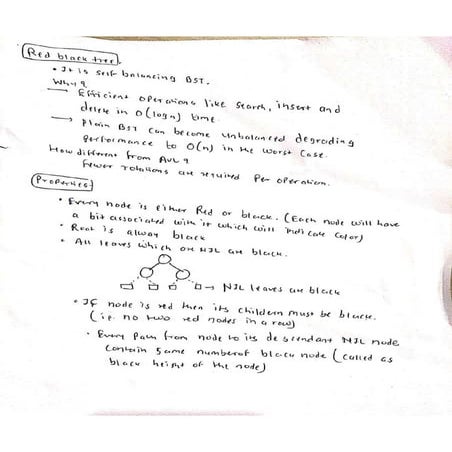 Red black tree
• It is self balancing BST.
Why?
→ Efficient operations like search, insert and
delete in O(logn) time.
→ Plain BST can become unbalanced degrading
performance to O(n) in the worst case.
How different from AVL?
Fewer rotations are required per operation.
Properties
• Every node is either Red or black. (Each node will have
a bit associated with it which will indicate color)
• Root is alway black
• All leaves which are NIL are black.
→ NIL leaves are black
• If node is red then its children must be black.
(i.e. no two red nodes in a row)
• Every path from node to its descendant NIL node
contain same number of black node (called as
black height of the node)